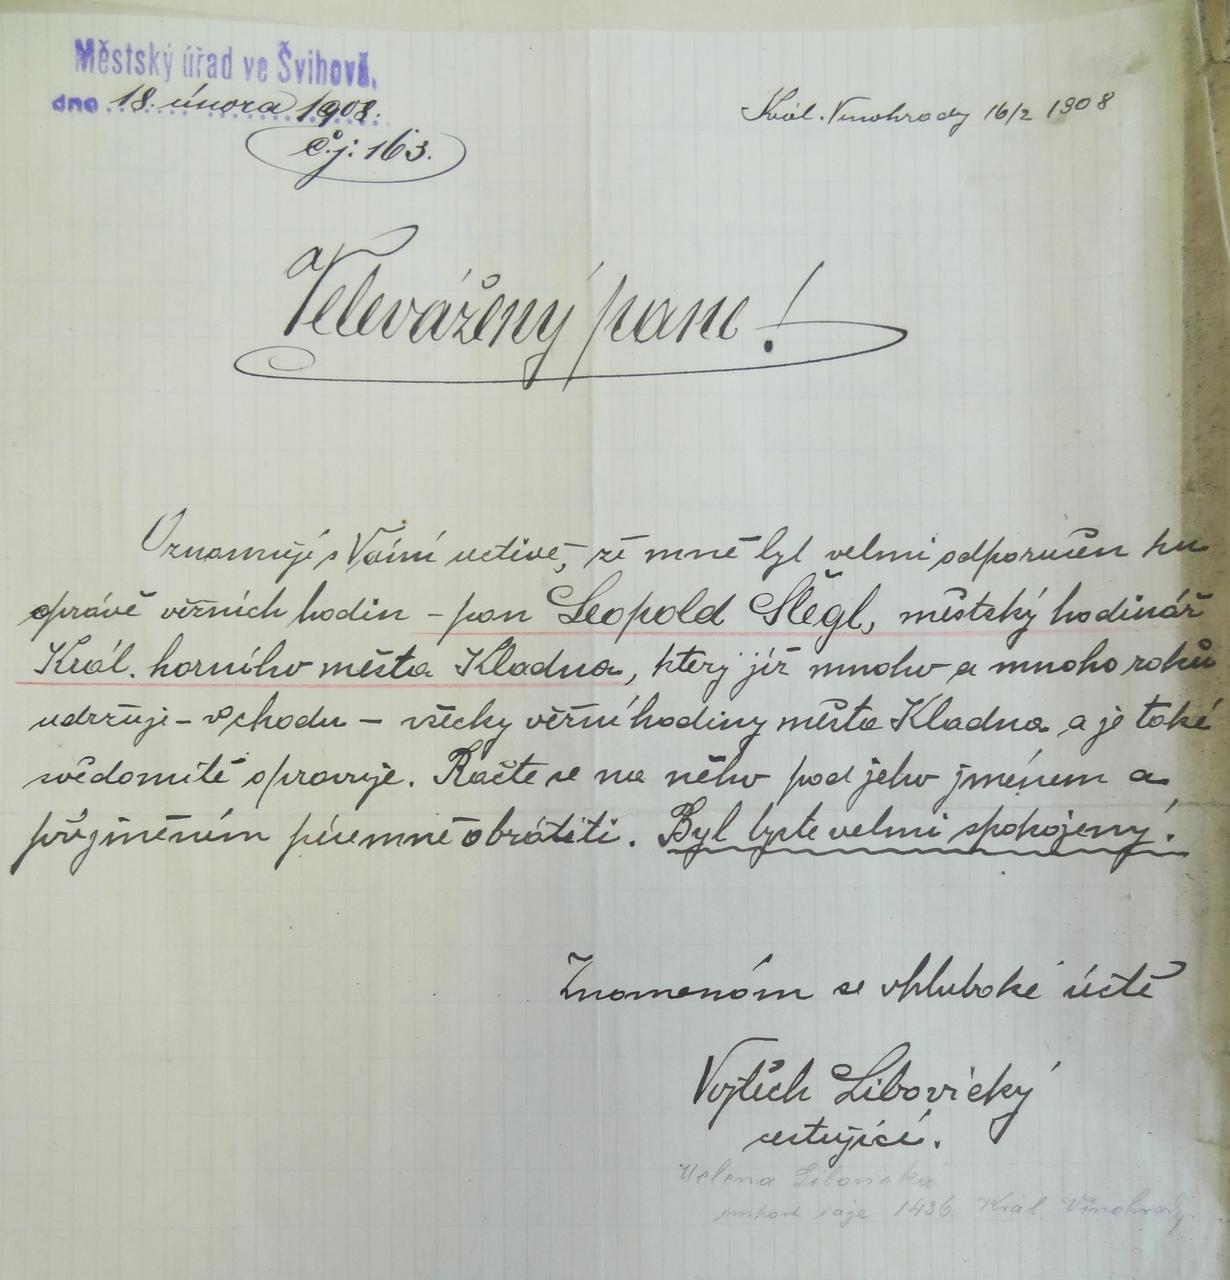 Městský úřad ve Švihově,
dne 18. února 1908.
č.j. 163.
Král. Vinohrady 16/2 1908
Velevážený pane!
Oznamuji Vámi uctivě, že mně byl velmi odporučen ku
správě věžních hodin – pan Leopold Šlégl, městský hodinář
Král. horního města Kladna, který již mnoho a mnoho roků
udržuje – v chodu – všecky věžní hodiny města Kladna a je také
svědomitě opravuje. Račte se na něho pod jeho jménem a
příjmením písemně obrátiti. Byl byste velmi spokojený.
Znamenám se v hluboké úctě
Vojtěch Libovický
cestující.
Helena Libovická
import čaje 1436. Král. Vinohrady